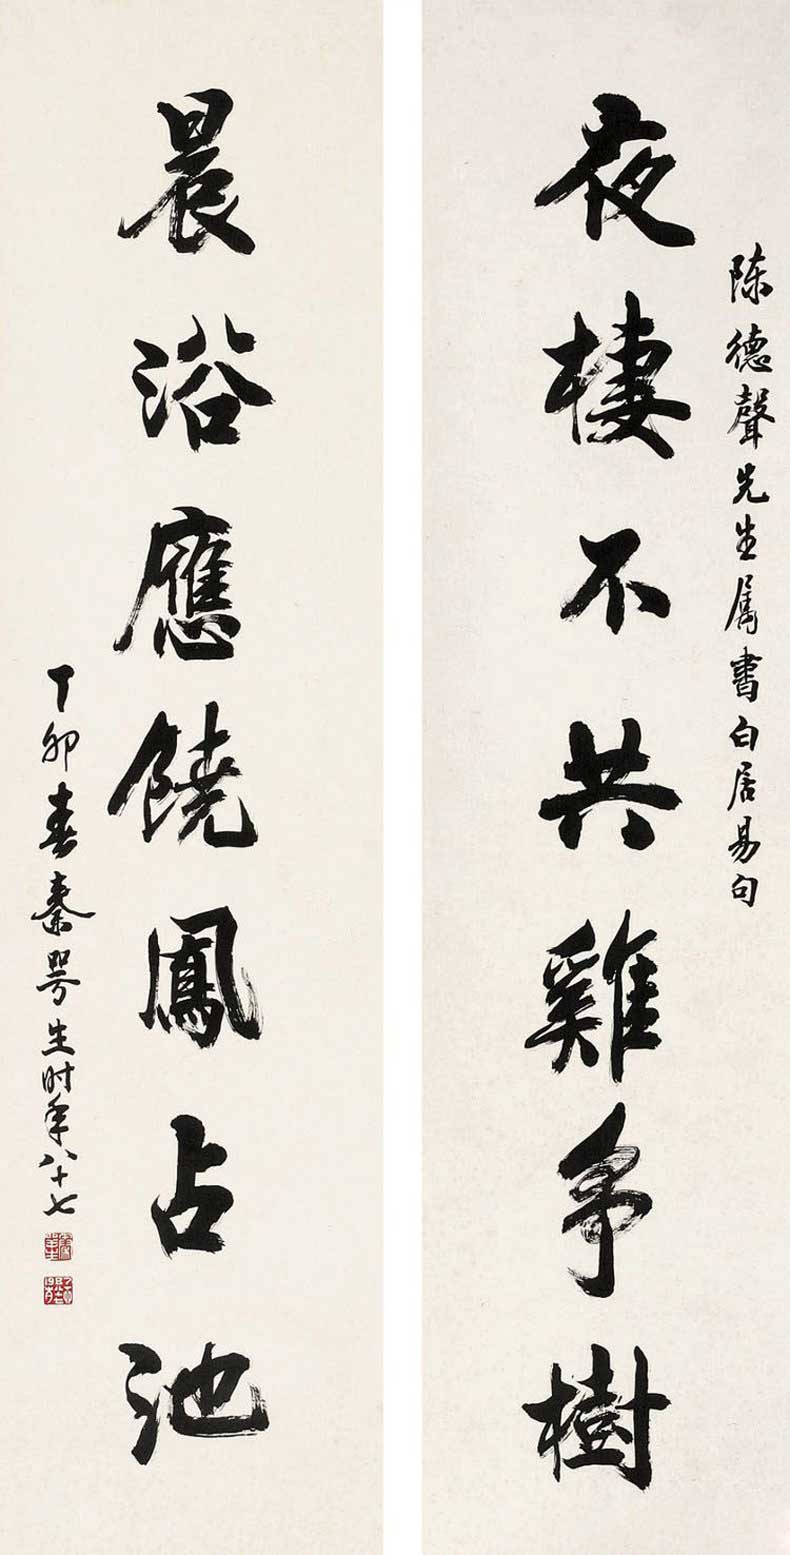 陈德聲先生属書白居易句
夜棲不共雞争樹
晨浴應饒鳳占池
丁卯春秦咢生时年八十七